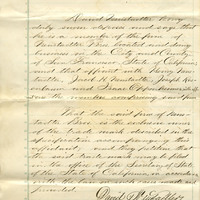 David Neustadter being
duly sworn deposes and says that
he is a member of the firm of
Neustadter Bros. located and doing
business in the City and County
of San Francisco, State of California,
and that affiant with Henry Neu-
stadter, Jacob H. Neustadter, Joseph Rosenbaum
and Isaac Oppenheimer
are the members composing said firm
That the said firm of Neu-
stadter Bros. is the exclusive owner
of the trade mark described in the
specification accompanying this
affidavit; and they petition that
the said trade mark may be filed
in the office of the Secretary of State
of the State of California, in accordance
with the law in such case made and
provided.
David Neustadter